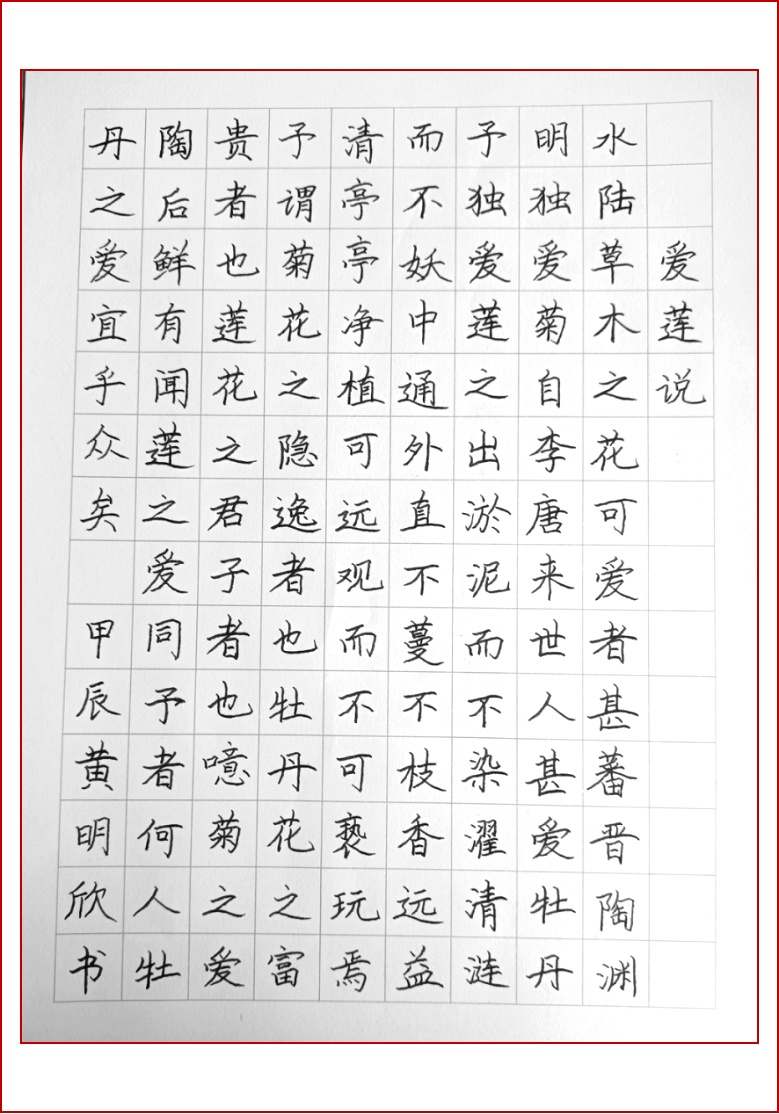 爱莲说
水陆草木之花可爱者甚蕃晋陶渊
明独爱菊自李唐来世人甚爱牡丹
予独爱莲之出淤泥而不染濯清涟
而不妖中通外直不蔓不枝香远益
清亭亭净植可远观而不可亵玩焉
予谓菊花之隐逸者也牡丹花之富
贵者也莲花之君子者也噫菊之爱
陶后鲜有闻莲之爱同予者何人牡
丹之爱宜乎众矣 甲辰黄明欣书